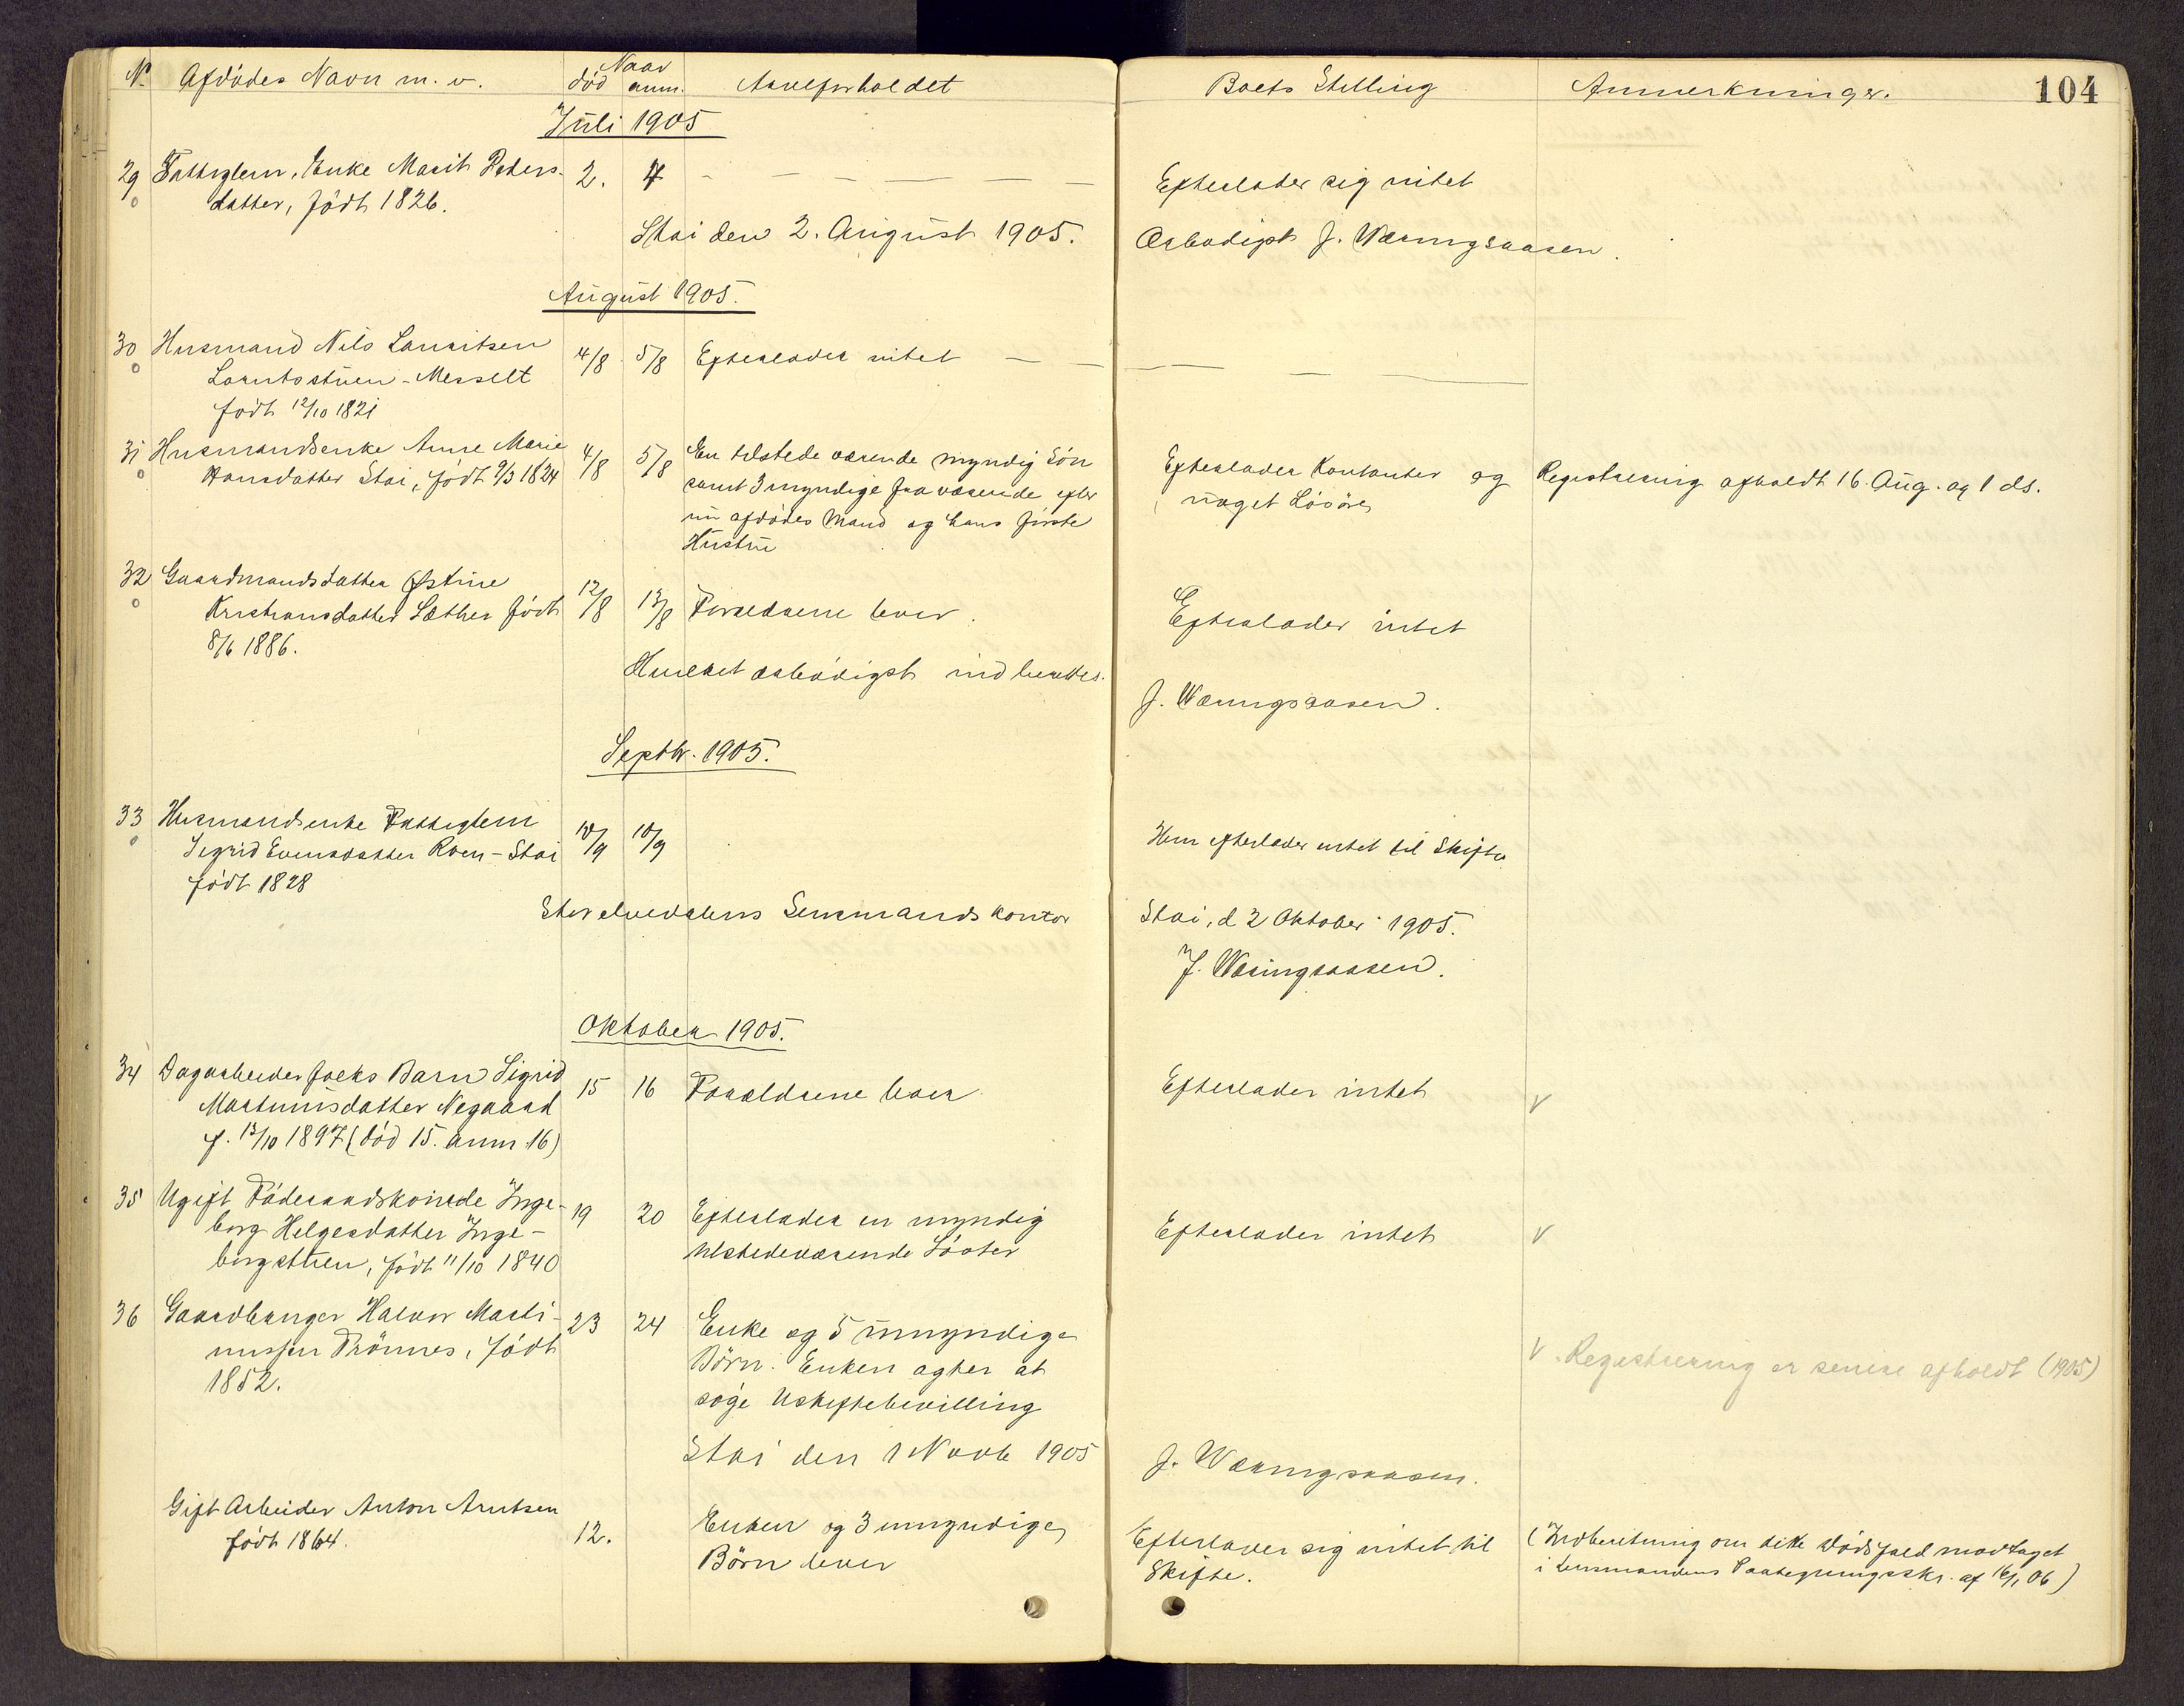 No Afdödes Navn m. v. Naar död anm. Arveforholdet Boets Stilling Anmerkninger. 104
Juli 1905
29 Fattiglem, Enke Marit Peders- 2. 4 Efterlader sig intet
datter, födt 1826.
Stai den 2. August 1905. Ærbødigst J. Wæringsaasen.
August 1905.
30 Husmand Nils Lauritsen 4/8 5/8 Efterlader intet
Lorntsstuen - Messelt
födt 12/10 1821
31 Husmandsenke Anne Marie 4/8 5/8 En tilstede værende myndig Sön Efterlader Kontanter og Registrering afholdt 16. Aug. og 1 ds.
Hansdatter Stai, födt 9/3 1824 samt 3 myndige fraværende efter noget Lösöre
nu afdödes Mand og hans förste
Hustru
32 Gaardmandsdatter Østine 12/8 13/8 Forældrene lever. Efterlader intet
Kristiansdatter Sæther födt
8/6 1886.
Hvilket ærbödigst indberettes. J. Wæringsaasen.
Septbr. 1905.
33 Husmandsenke Fattiglem 10/9 10/9 Hun efterlader intet til Skifte
Sigrid Evensdatter Roen - Stai
födt 1828
Storelvedalens Lensmandskontor Stai, d 2 Oktober 1905.
J. Wæringsaasen.
Oktober 1905.
34 Dagarbeider Jocks Barn Sigrid 15 16 Forældrene lever Efterlader intet V
Martinusdatter Negaard
f. 13/10 1897 (död 15. anm 16)
35 Ugift Föderaadskvinde Inge- 19 20 Efterlader en myndig Efterlader intet V
borg Helgesdatter Inge- tilstedeværende Söster
borgstuen, födt 11/10 1840
36 Gaardbruger Halvor Marti- 23 24 Enke og 5 umyndige V. Registrering er senere afholdt (1905)
nussen Trönnes, födt Börn. Enken agter at
1852. söge Uskiftebevilling
Stai den 1 Novb 1905 J. Wæringsaasen.
Gift Arbeider Anton Arntsen 12. Enken og 3 umyndige Efterlader sig intet til (Indberetning om dette Dödsfald modtaget
födt 1864. Börn lever Skifte. i Lensmandens Paategningsskr. af 16/1 06)